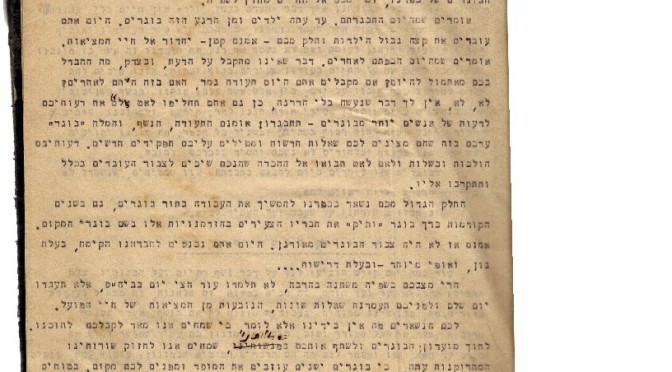 אומרים שמהיום התבגרתם. עד עתה ילדים ומן הרגע הזה בוגרים. היום אתם
עוברים את קצה גבול הילדות וחלק מכם - אמנם קטן- יחדור אל חיי המציאות.
אומרים שמהיום הפכתם לאחרים. דבר שאינו מתקבל על הדעת, ובצדק, מה ההבדל
בכם מאתמול להיום? אם מקבלים אתם היום תעודת גמר, האם בזה הינכם לאחרים?
לא, לא, אין לך דבר שנעשה בלי הדרגה, כן גם אתם תחליפו לאט לאט את דעותיכם
לדעות של אנשים יותר מבוגרים - תתבגרו! אומנם התעודה, הנשף, והמלה "בוגר"
ערכם בזה שהם מציגים לכם שאלות חדשות ומטילים עליכם תפקידים חדשים. דעותיכם
הולכות ובשלות ולאט לאט תבואו אל ההכרה שהנכם שיכים לצבור העובדים בכלל
ותתקרבו אליו.
החלק הגדול מכם נשאר בכפרנו להמשיך את העבודה בתור בוגרים, גם בשנים
הקודמות ברך בוגר "ותיק" את חבריו הצעירים בהזדמנויות אלו בשם בוגרי המקום.
אמנם אז לא היה צבור הבוגרים מאורגן. היום אתם נכנסים לחברתנו הקימת, בעלת
גון, ואופי מיוחד -ובעלת דרישות....
הרי מצבכם בשפיה משתנה בהרבה, לא תלמדו עוד חצי יום בביה"ס, אלא תעבדו
יום שלם ולפניכם תעמדנה שאלות שונות, הנובעות מן המציאות של חיי הפועל.
לכם הנשארים מה אין בידינו אלא לומר כי שמחים אנו מאד לקבלכם לתוכנו.
לתוך מועדון הבוגרים ולשתף אותכם, שמחים אנו לחזוק שורותינו
המתרוקנות עתה כי בוגרים ישנים עוזבים את המוסד ומפנים לכם מקום. בטוחים